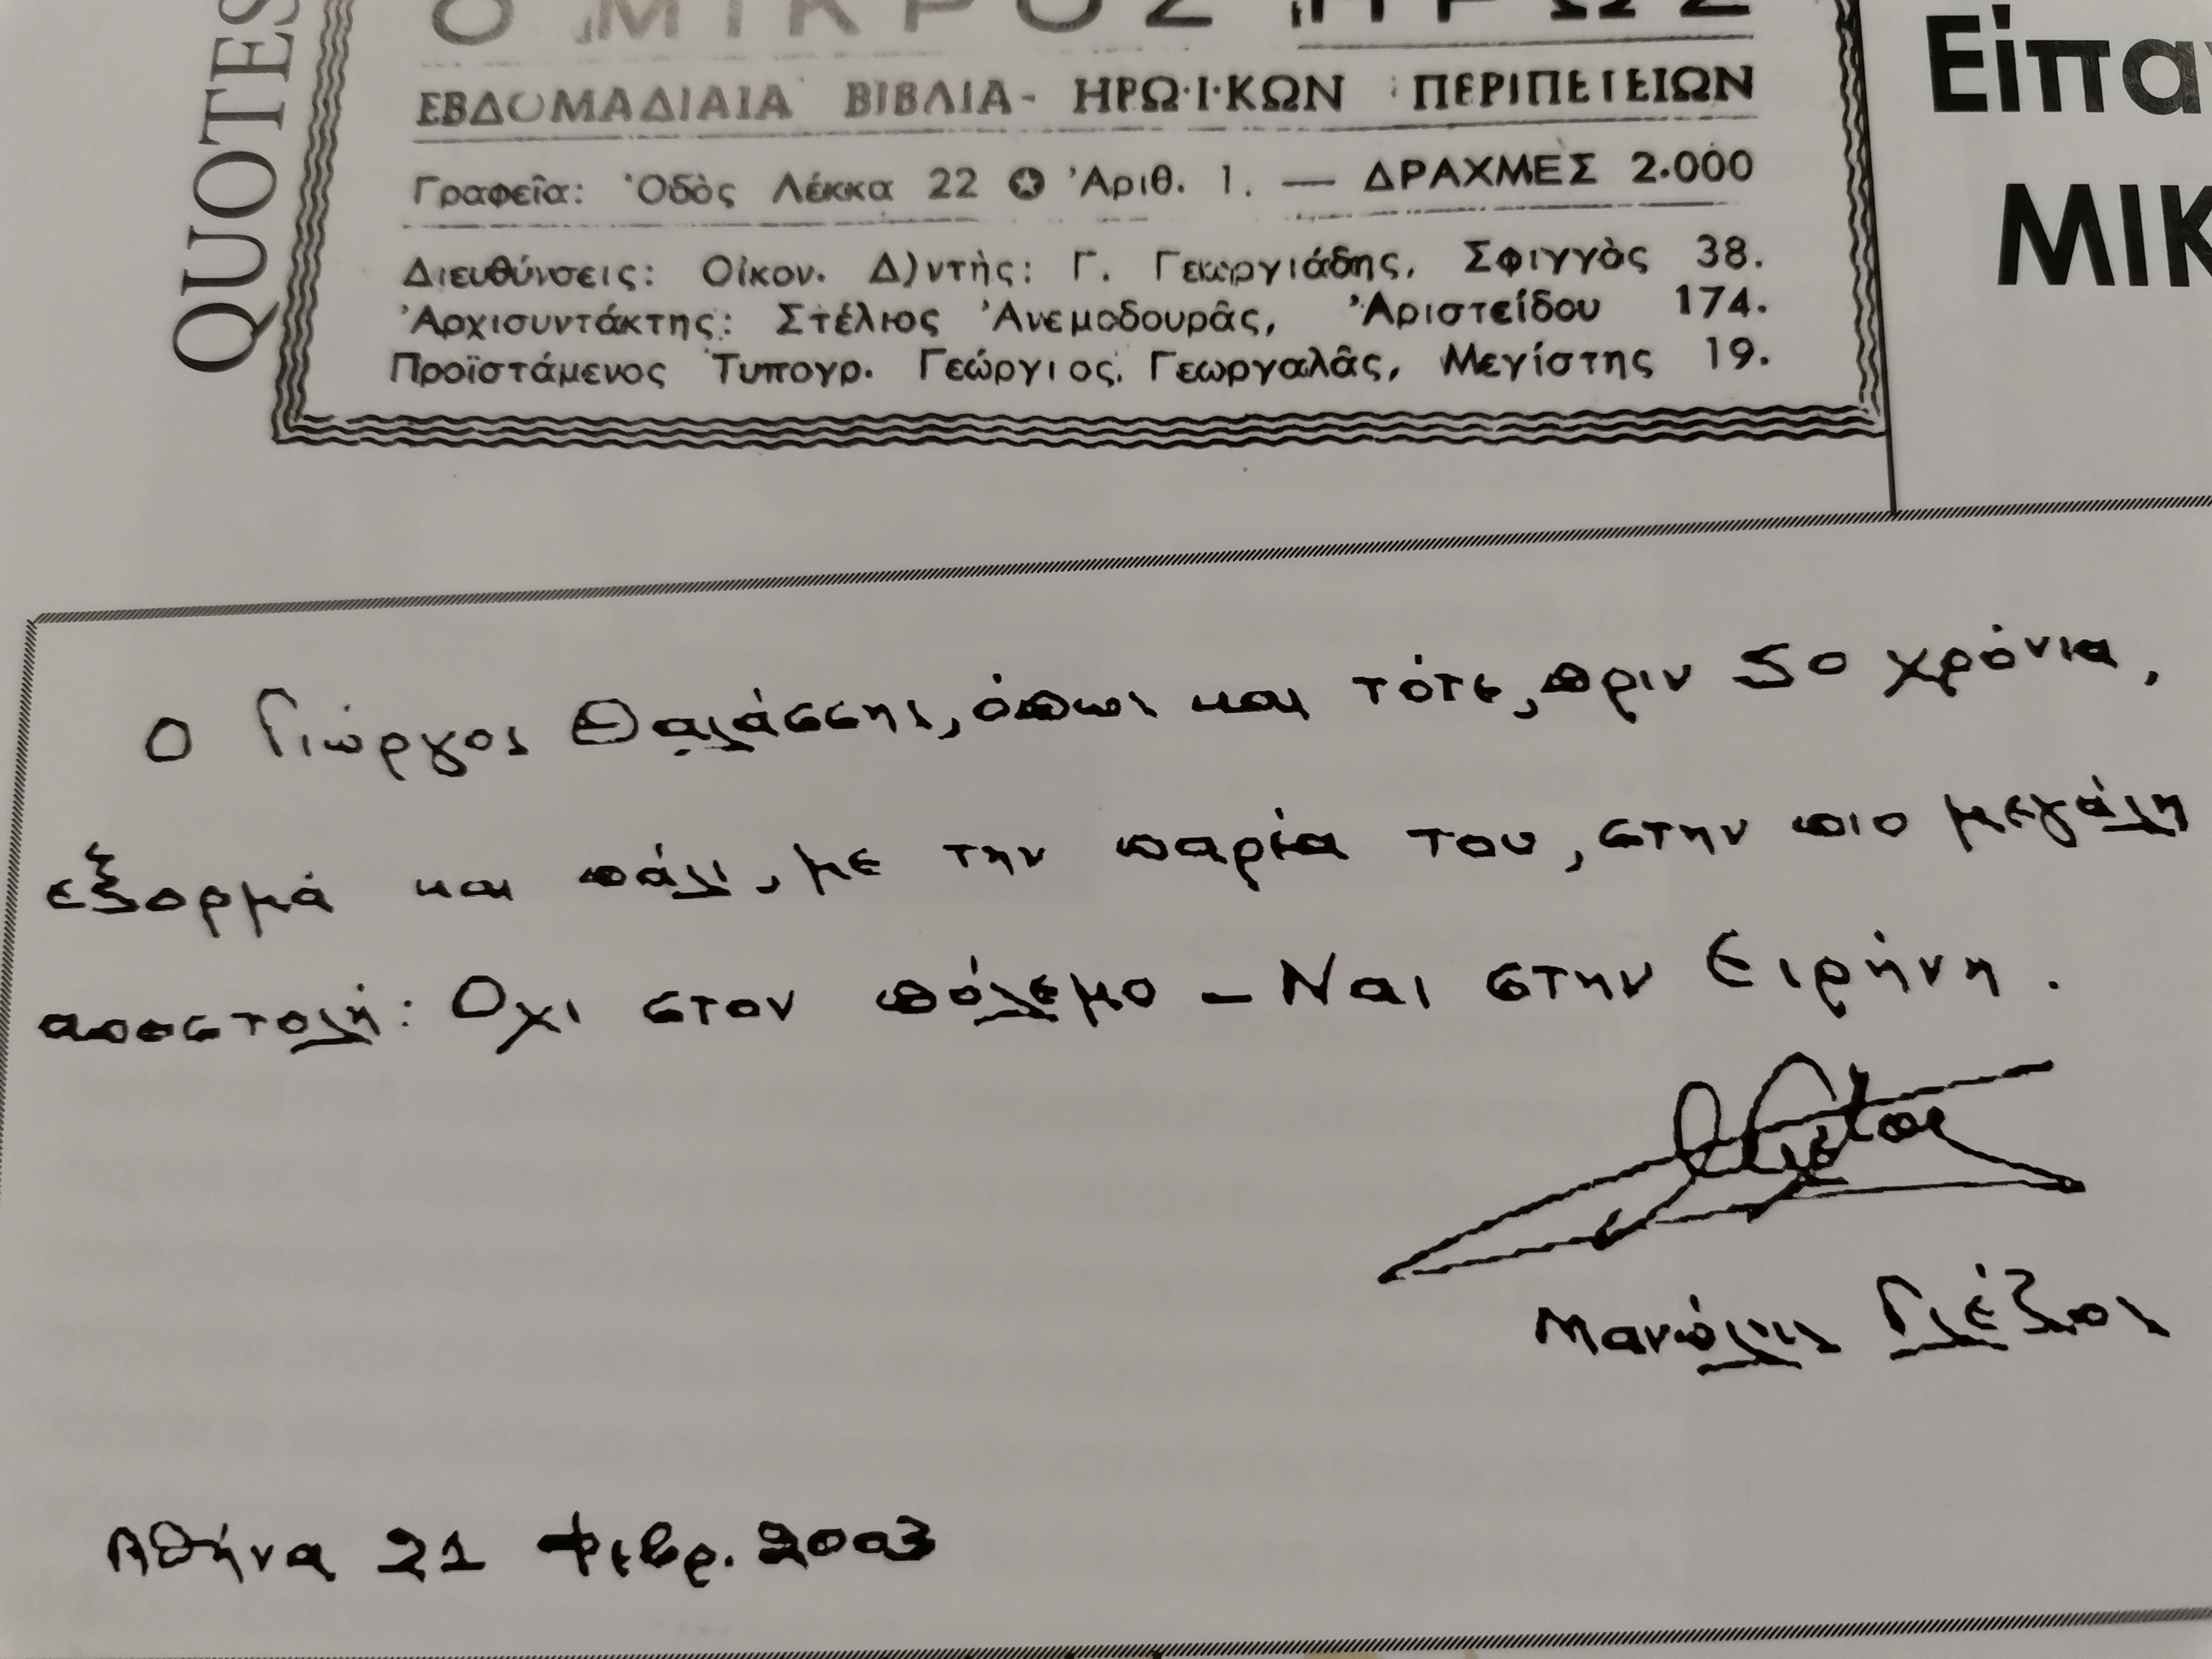 QUOTES
Ο ΜΙΚΡΟΣ ΗΡΩΣ
ΕΒΔΟΜΑΔΙΑΙΑ ΒΙΒΛΙΑ - ΗΡΩ·Ι·ΚΩΝ ΠΕΡΙΠΕΤΕΙΩΝ
Γραφεῖα: Ὁδὸς Λέκκα 22 ✪ Ἀριθ. 1. — ΔΡΑΧΜΕΣ 2.000
Διευθύνσεις: Οἰκον. Δ)ντὴς: Γ. Γεωργιάδης, Σφιγγὸς 38.
Ἀρχισυντάκτης: Στέλιος Ἀνεμοδουρᾶς, Ἀριστείδου 174.
Προϊστάμενος Τυπογρ. Γεώργιος Γεωργαλᾶς, Μεγίστης 19.
Είπαν
ΜΙΚ
Ο Γιώργος Θαλάσσης, όπως και τότε, πριν 50 χρόνια,
εξορμά και πάλι, με την παρέα του, στην πιο μεγάλη
αποστολή: Οχι στον πόλεμο – Ναι στην Ειρήνη.
Μανώλης Γλέζος
Αθήνα 21 Φεβρ. 2003